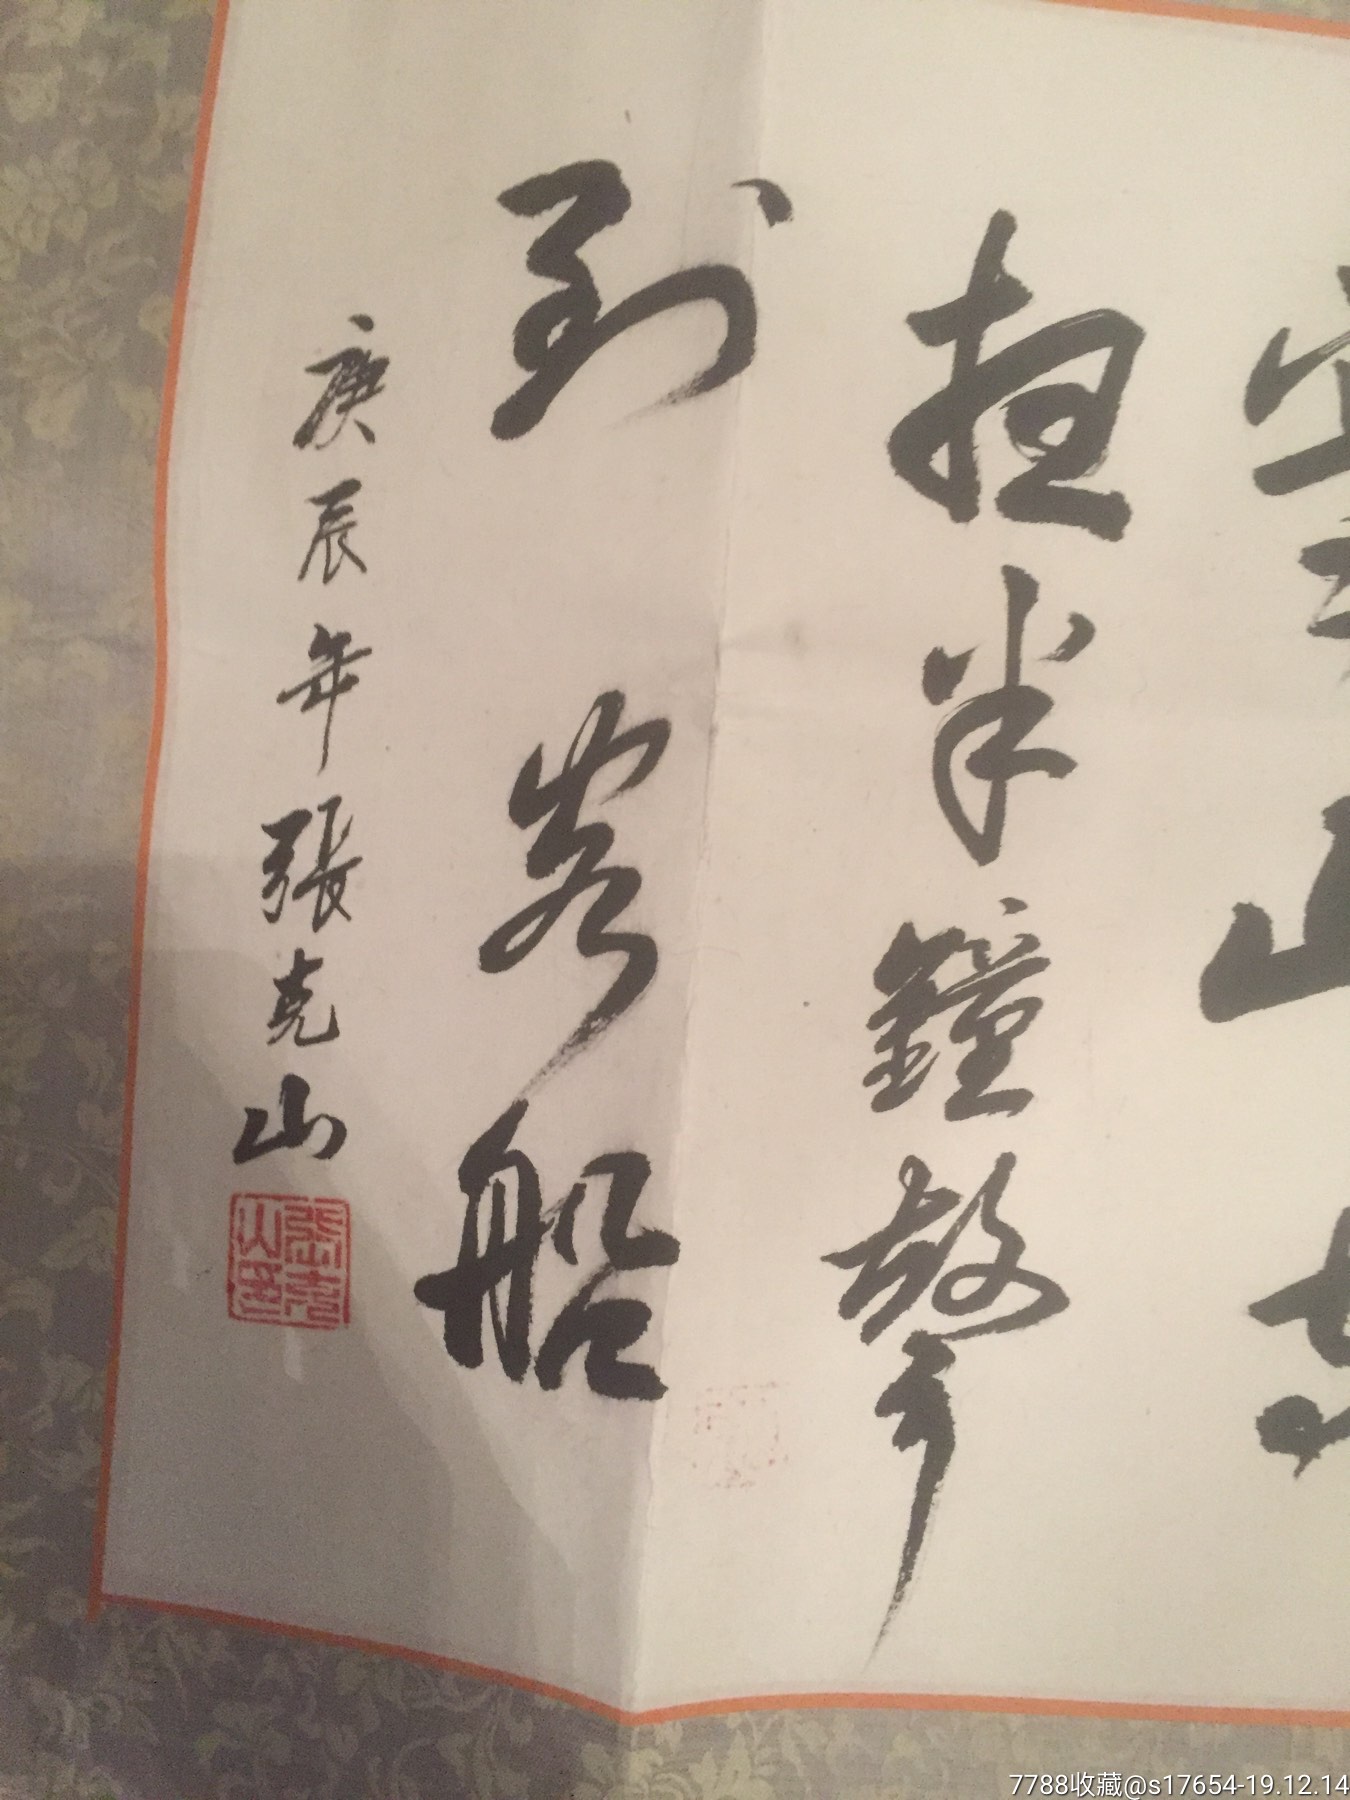 寒山寺
半鐘聲
到客船
庚辰年張克山
張克山印
7788收藏@s17654-19.12.14